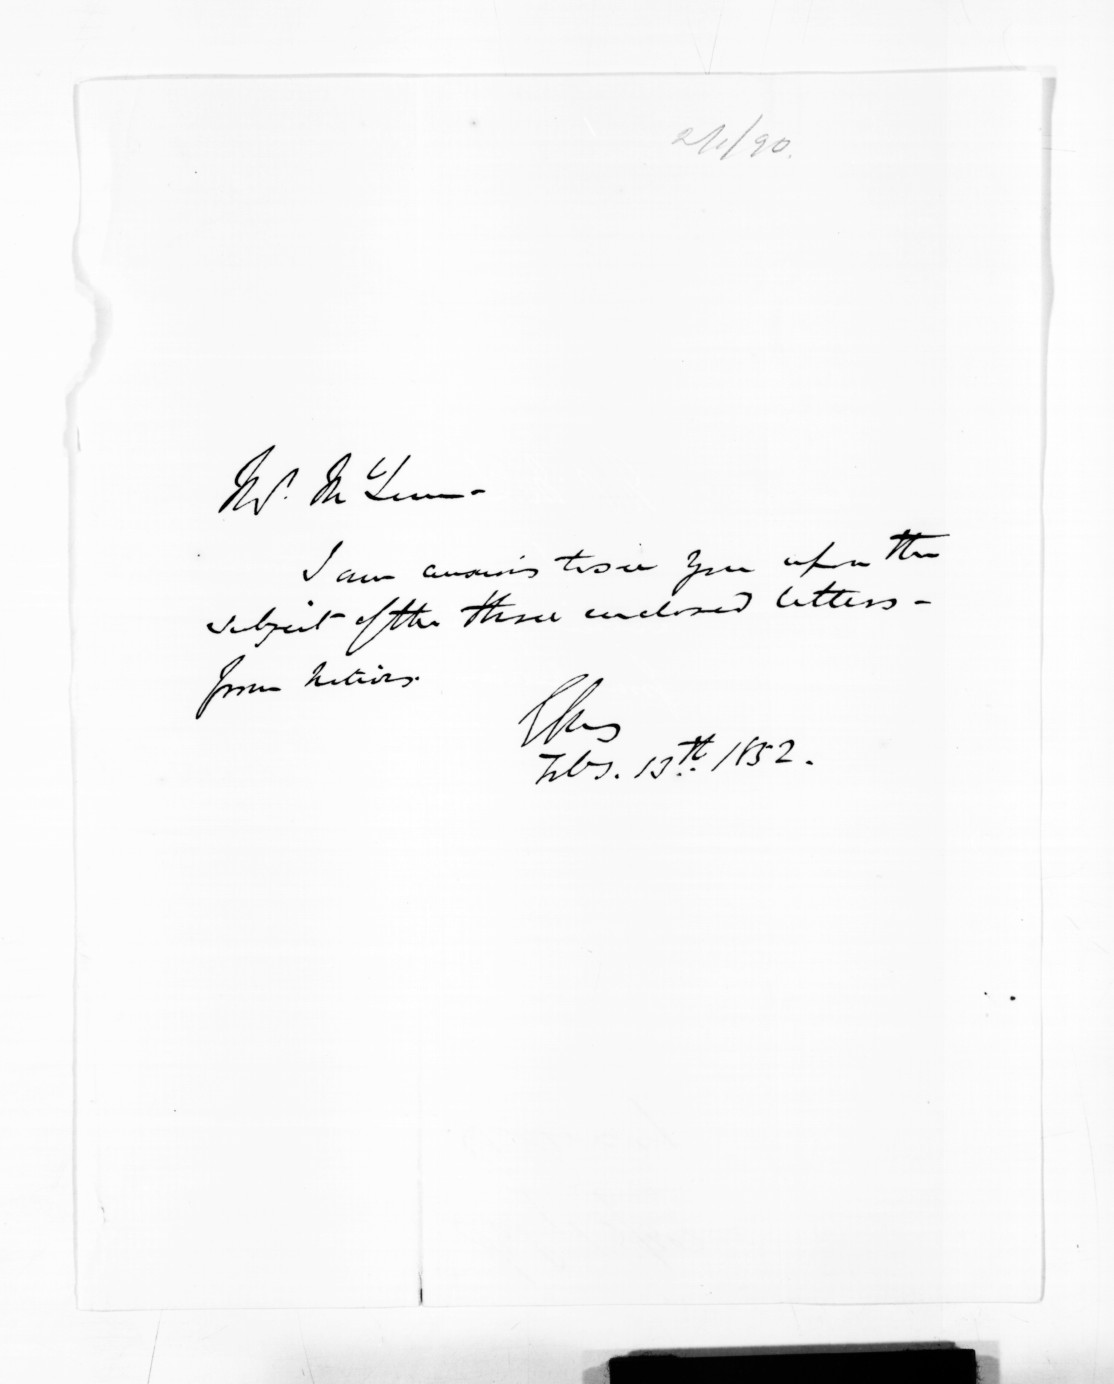 2/1/90.
Mr. McLean -
I am anxious to see you upon the
subject of the three enclosed letters -
from natives.
Feby. 13th. 1852.